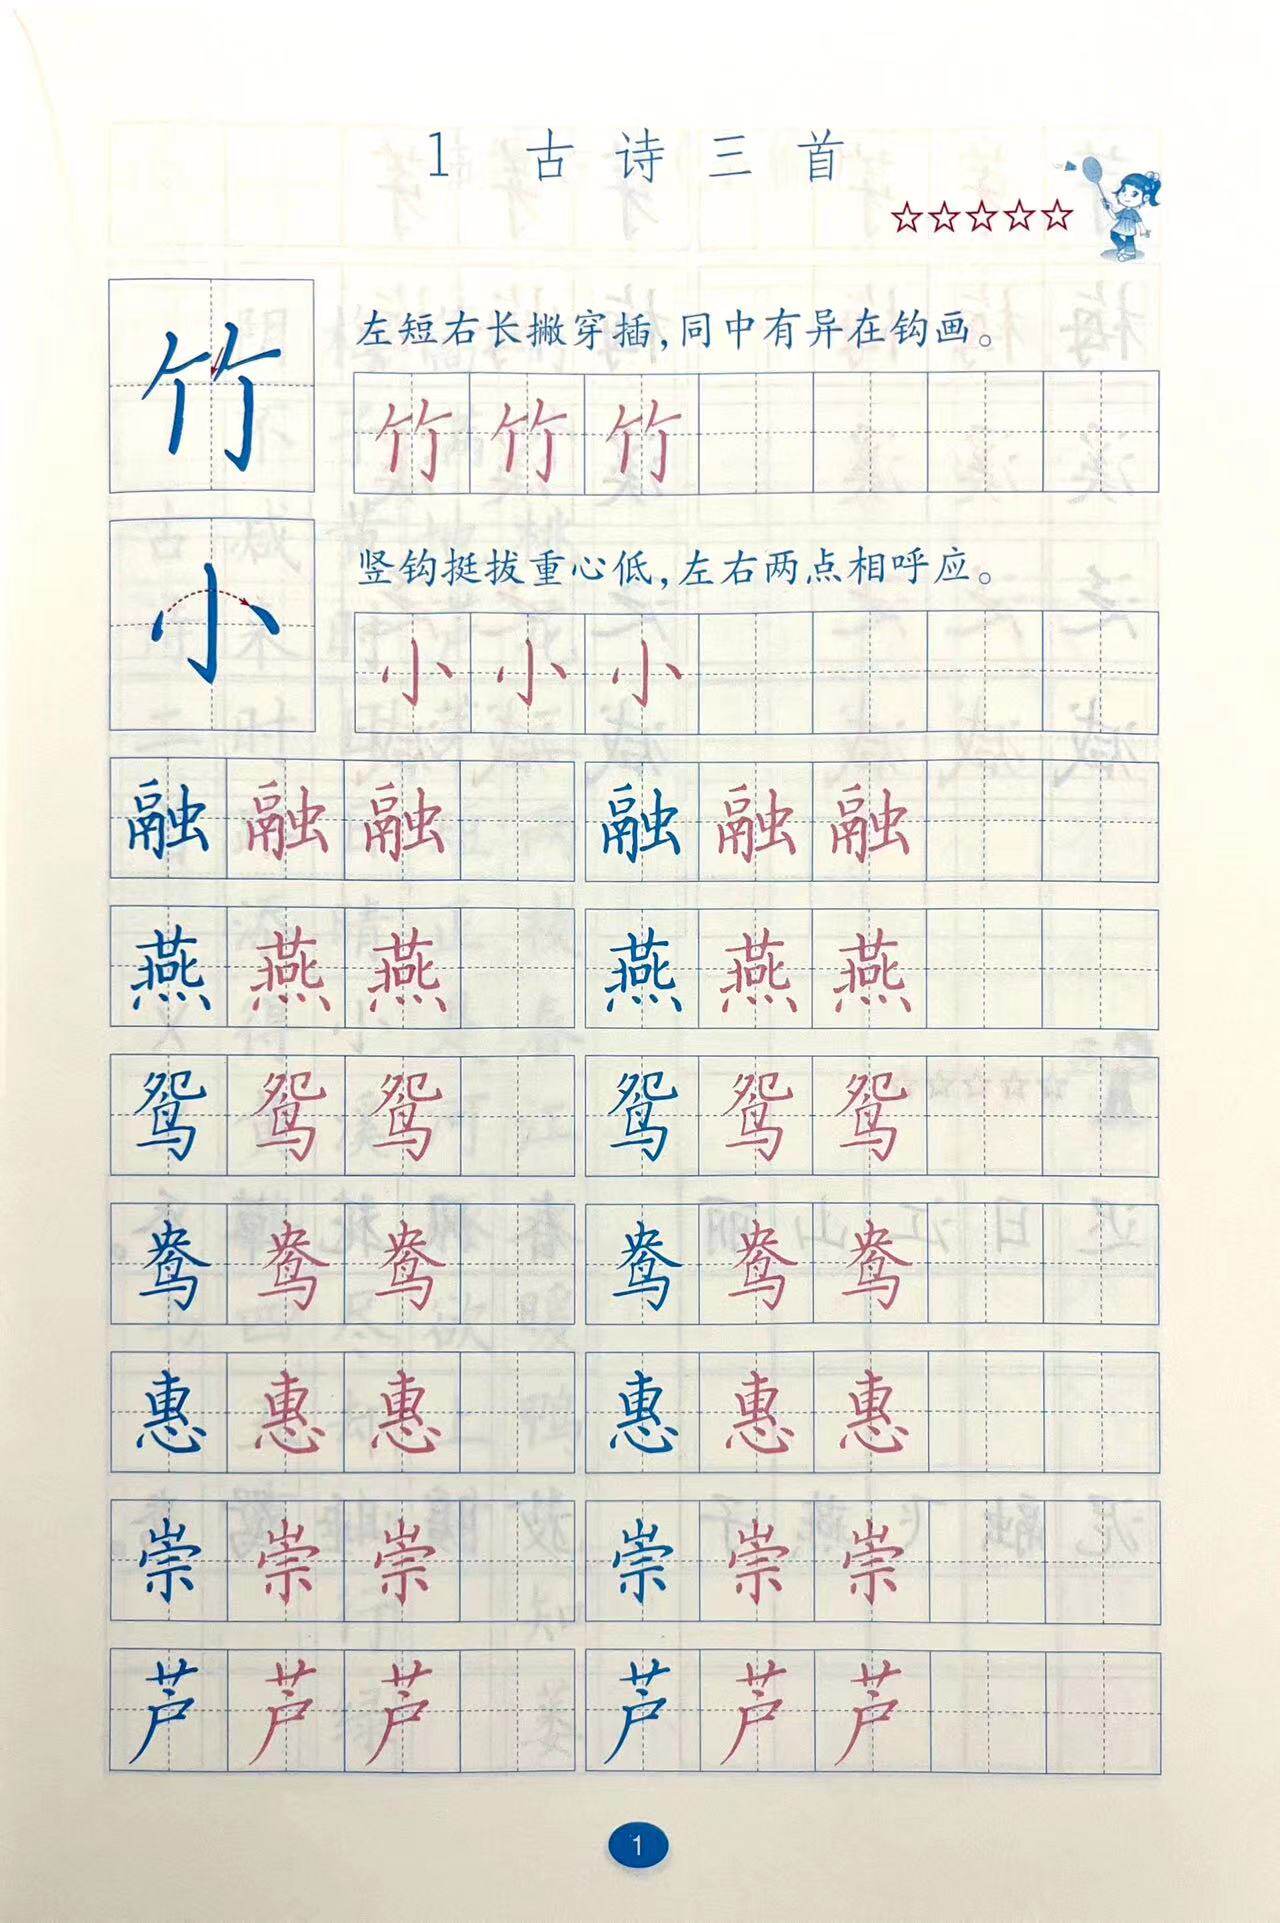 1 古诗三首
竹 左短右长撇穿插,同中有异在钩画。
竹 竹 竹
小 竖钩挺拔重心低,左右两点相呼应。
小 小 小
融 融 融 融 融 融
燕 燕 燕 燕 燕 燕
鸳 鸳 鸳 鸳 鸳 鸳
鸯 鸯 鸯 鸯 鸯 鸯
惠 惠 惠 惠 惠 惠
崇 崇 崇 崇 崇 崇
芦 芦 芦 芦 芦 芦
1